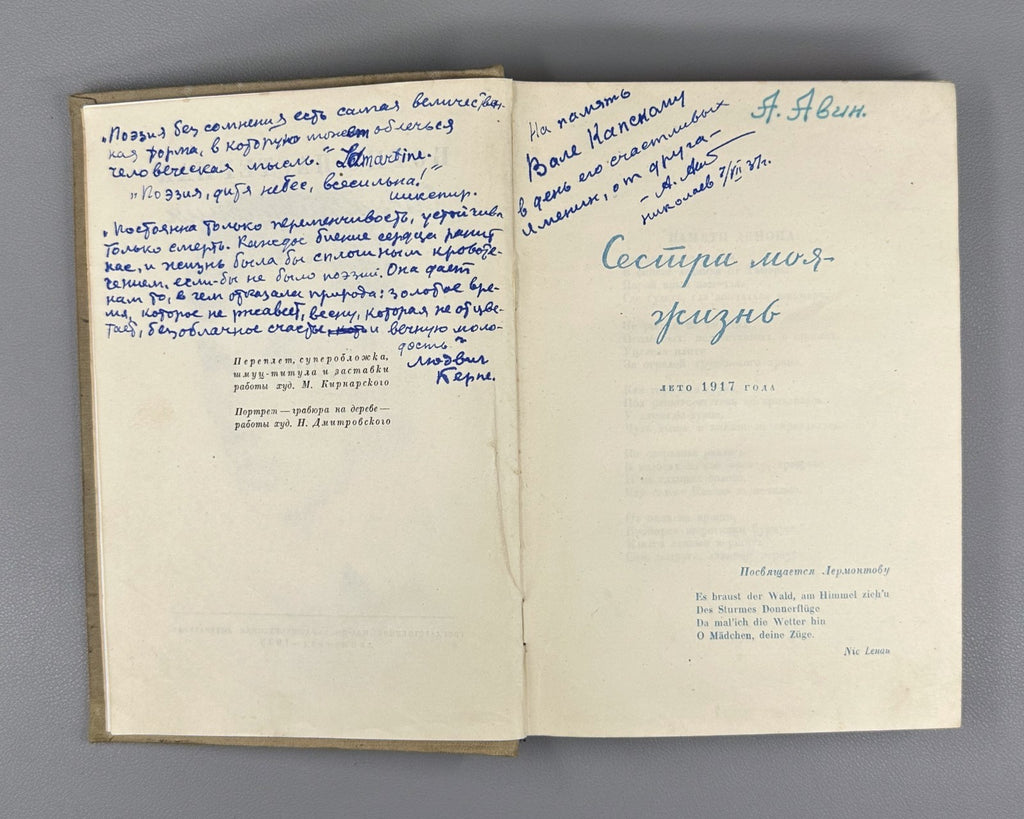 „Поэзия без сомнения есть самая величествен-
ная форма, в которую может облечься
человеческая мысль." Lamartine.
„Поэзия, дитя небес, всесильна!"
Шекспир.
„Постоянна только переменчивость, устойчива
только смерть. Каждое биение сердца ранит
нас, и жизнь была бы сплошным кровоте-
чением, если-бы не было поэзии. Она дает
нам то, в чем отказала природа: золотое вре-
мя, которое не ржавеет, весну, которая не отцве-
тает, безоблачное счастье и вечную моло-
дость"
Людвиг
Берне.
Переплет, суперобложка,
шмуц-титула и заставки
работы худ. М. Кирнарского
Портрет — гравюра на дереве —
работы худ. Н. Дмитровского
На память
Вале Капскому
в день его счастливых
именин, от друга —
А.
Николаев 7/VII 37г.
А. Авин.
Сестра моя-
жизнь
ЛЕТО 1917 ГОДА
Посвящается Лермонтову
Es braust der Wald, am Himmel zieh'n
Des Sturmes Donnerflüge
Da mal'ich die Wetter hin
O Mädchen, deine Züge.
Nic Lenau